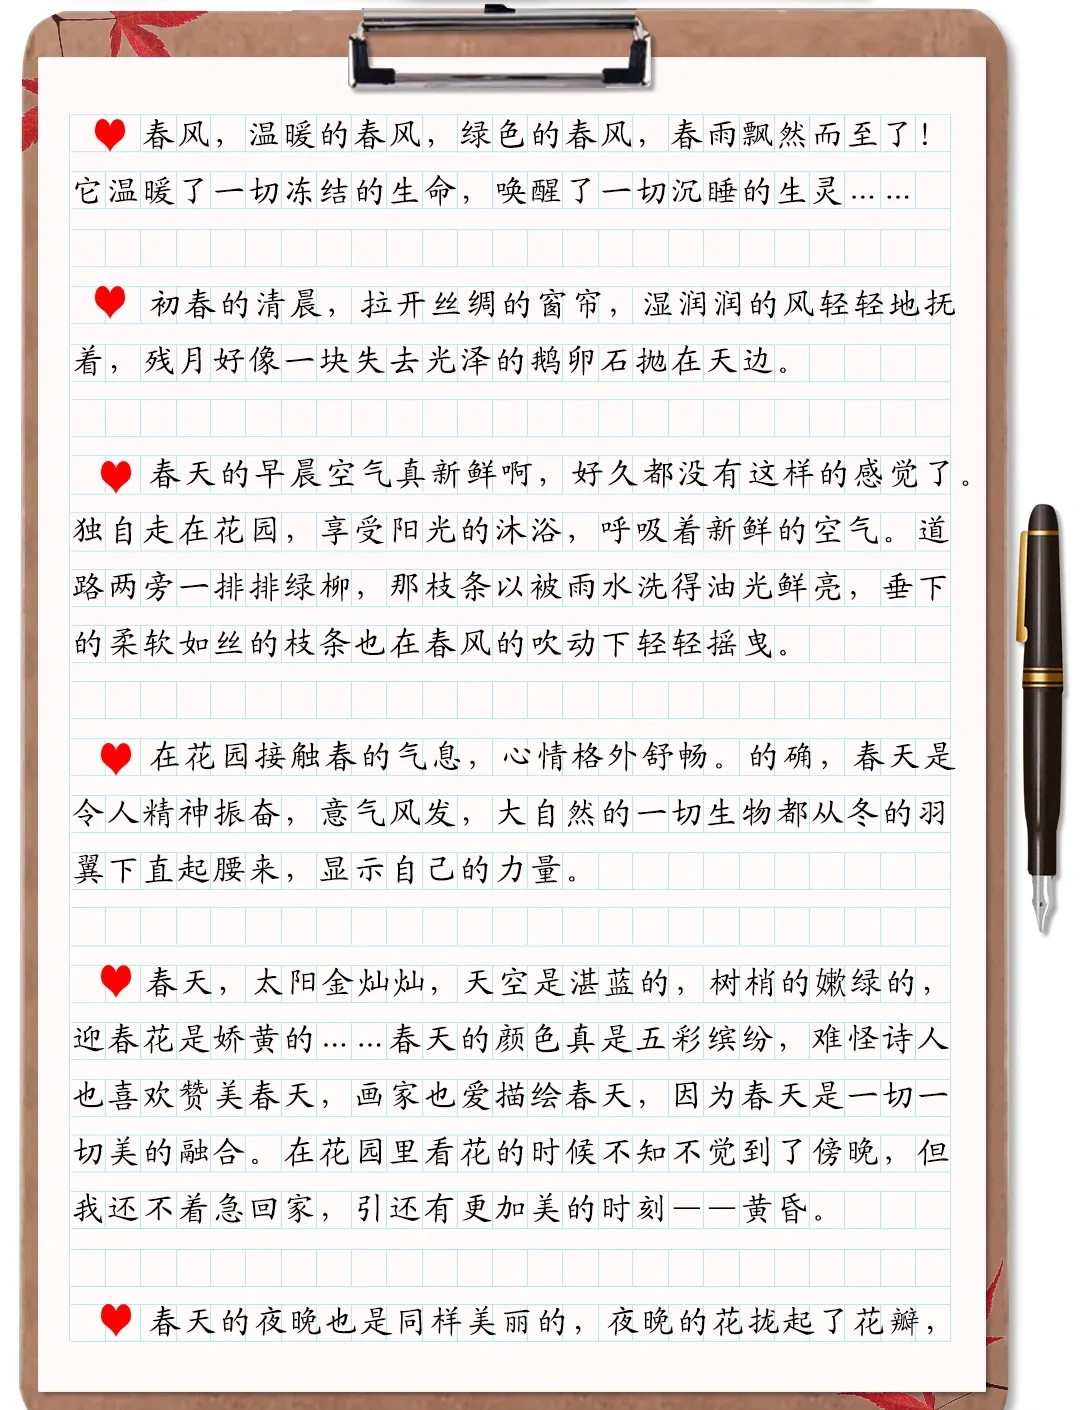 春风，温暖的春风，绿色的春风，春雨飘然而至了！
它温暖了一切冻结的生命，唤醒了一切沉睡的生灵……
初春的清晨，拉开丝绸的窗帘，湿润润的风轻轻地抚
着，残月好像一块失去光泽的鹅卵石抛在天边。
春天的早晨空气真新鲜啊，好久都没有这样的感觉了。
独自走在花园，享受阳光的沐浴，呼吸着新鲜的空气。道
路两旁一排排绿柳，那枝条以被雨水洗得油光鲜亮，垂下
的柔软如丝的枝条也在春风的吹动下轻轻摇曳。
在花园接触春的气息，心情格外舒畅。的确，春天是
令人精神振奋，意气风发，大自然的一切生物都从冬的羽
翼下直起腰来，显示自己的力量。
春天，太阳金灿灿，天空是湛蓝的，树梢的嫩绿的，
迎春花是娇黄的……春天的颜色真是五彩缤纷，难怪诗人
也喜欢赞美春天，画家也爱描绘春天，因为春天是一切一
切美的融合。在花园里看花的时候不知不觉到了傍晚，但
我还不着急回家，引还有更加美的时刻——黄昏。
春天的夜晚也是同样美丽的，夜晚的花拢起了花瓣，